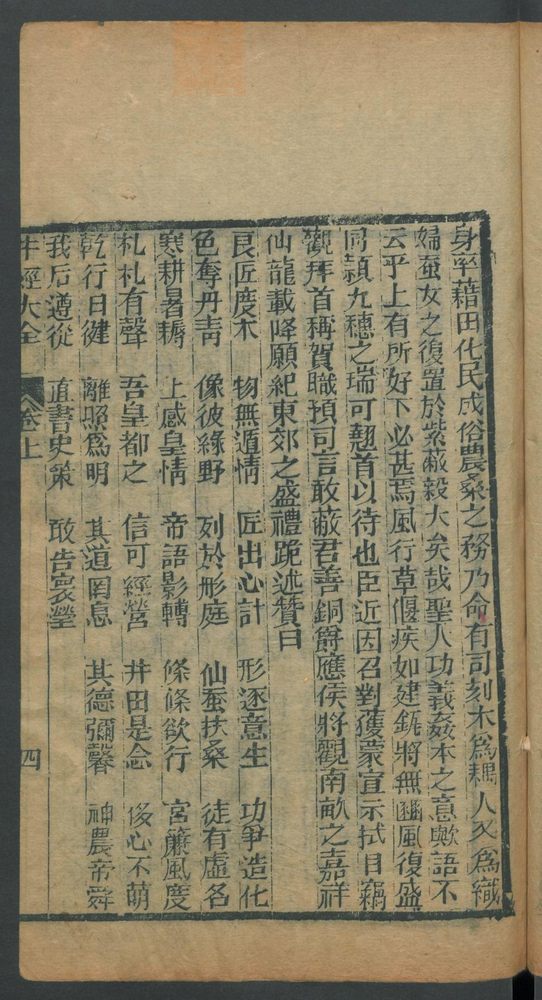 身率藉田化民成俗農桑之務乃命有司刻木爲耦人又爲織
婦蚕女之復置於紫蔽毅大矣哉聖人功義姦本之意歟語不
云乎上有所好下必甚焉風行草偃疾如建瓴將無豳風復盛
同頴九穗之瑞可翹首以待也臣近因召對獲蒙宣示拭目竊
觀拜首稱賀職損司言敢蔽君善銅爵應侯將觀南畝之嘉祥
仙龍載降願紀東郊之盛禮跪述贊曰
良匠度木 物無遁情 匠出心計 形逐意生 功爭造化
色奪丹靑 像彼綠野 列於形庭 仙蚕扶桑 徒有虛名
寒耕暑耨 上感皇情 帝語影轉 條條欲行 宮簾風度
札札有聲 吾皇都之 信可經營 井田是念 侈心不萌
乾行日健 離照爲明 其道罔息 其德彌馨 神農帝舜
我后遵從 直書史策 敢告寰瀛
牛經大全 卷上 四